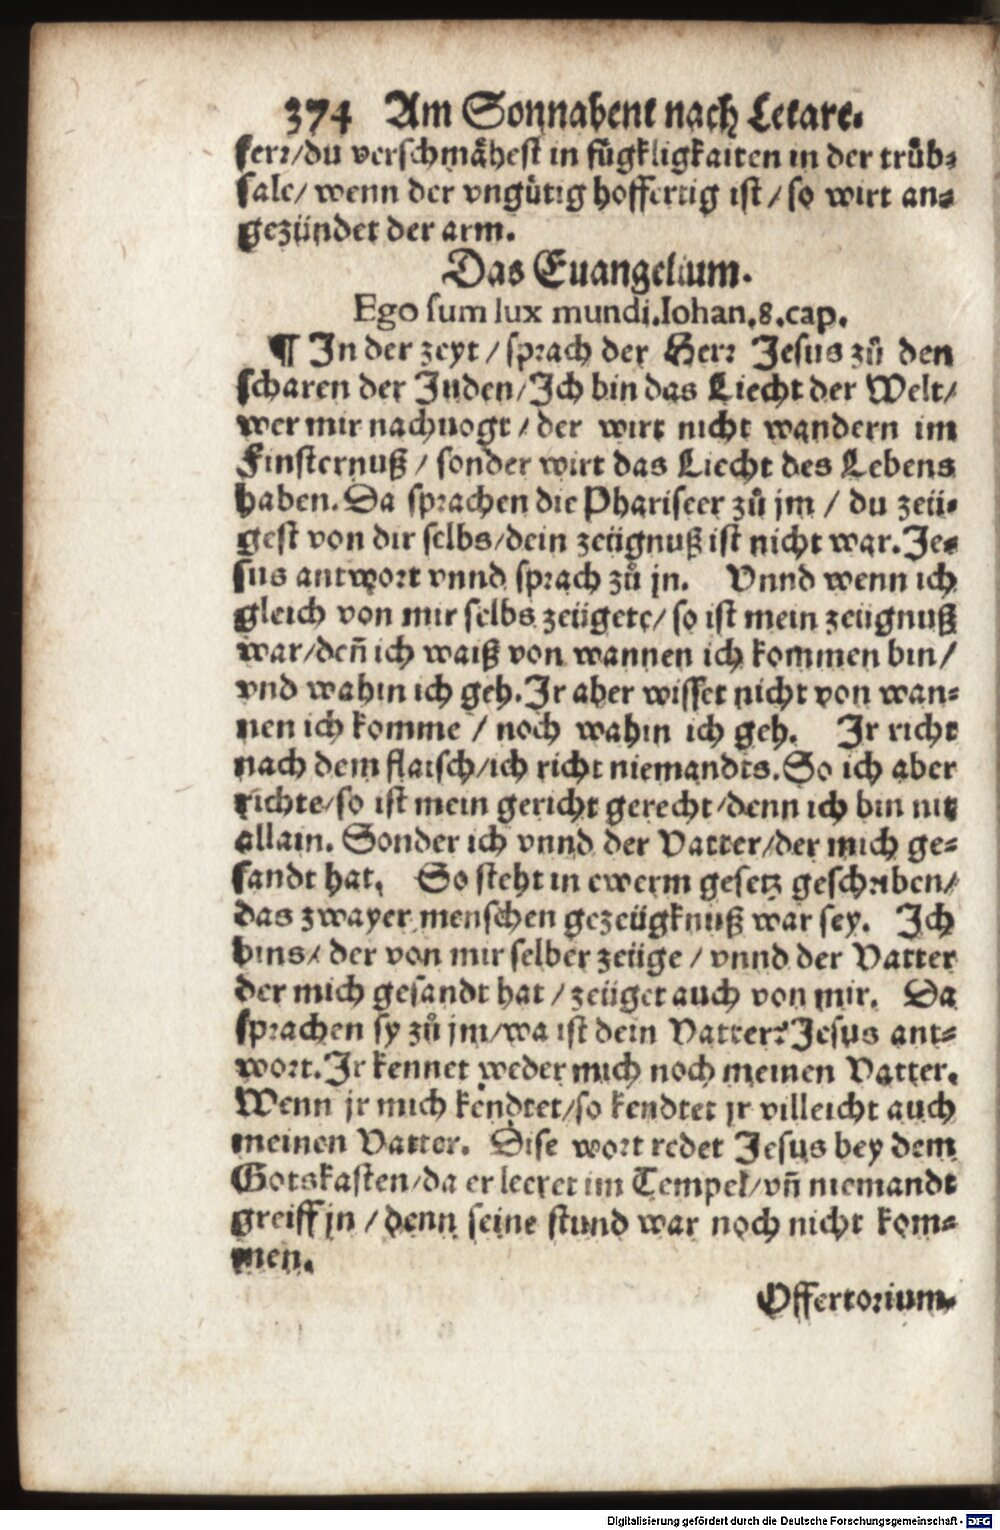 374 Am Sonnabent nach Letare.
ferr/du verschmähest in fügkligkaiten in der trüb-
sale/ wenn der vngütig hoffertig ist / so wirt an-
gezündet der arm.
Das Euangelium.
Ego sum lux mundi. Iohan. 8. cap.
¶ In der zeyt / sprach der Herr Jesus zů den
scharen der Juden/Ich bin das Liecht der Welt/
wer mir nachuogt / der wirt nicht wandern im
Finsternuß / sonder wirt das Liecht des Lebens
haben. Da sprachen die Phariseer zů jm / du zeü-
gest von dir selbs/dein zeügnuß ist nicht war. Je-
sus antwort vnnd sprach zů jn. Vnnd wenn ich
gleich von mir selbs zeügete/ so ist mein zeügnuß
war/deñ ich waiß von wannen ich kommen bin/
vnd wahin ich geh. Ir aber wisset nicht von wan-
nen ich komme / noch wahin ich geh. Ir richt
nach dem flaisch/ich richt niemandts. So ich aber
richte/so ist mein gericht gerecht/denn ich bin nit
allain. Sonder ich vnnd der Vatter/der mich ge-
sandt hat. So steht in ewerm gesetz geschriben/
das zwayer menschen gezeügknuß war sey. Ich
bins/ der von mir selber zeüge / vnnd der Vatter
der mich gesandt hat / zeüget auch von mir. Da
sprachen sy zů jm/wa ist dein Vatter? Jesus ant-
wort. Ir kennet weder mich noch meinen Vatter.
Wenn jr mich kendtet/so kendtet jr villeicht auch
meinen Vatter. Dise wort redet Jesus bey dem
Gotskasten/da er leeret im Tempel/vñ niemandt
greiff jn / denn seine stund war noch nicht kom-
men.
Offertorium.
Digitalisierung gefördert durch die Deutsche Forschungsgemeinschaft - DFG